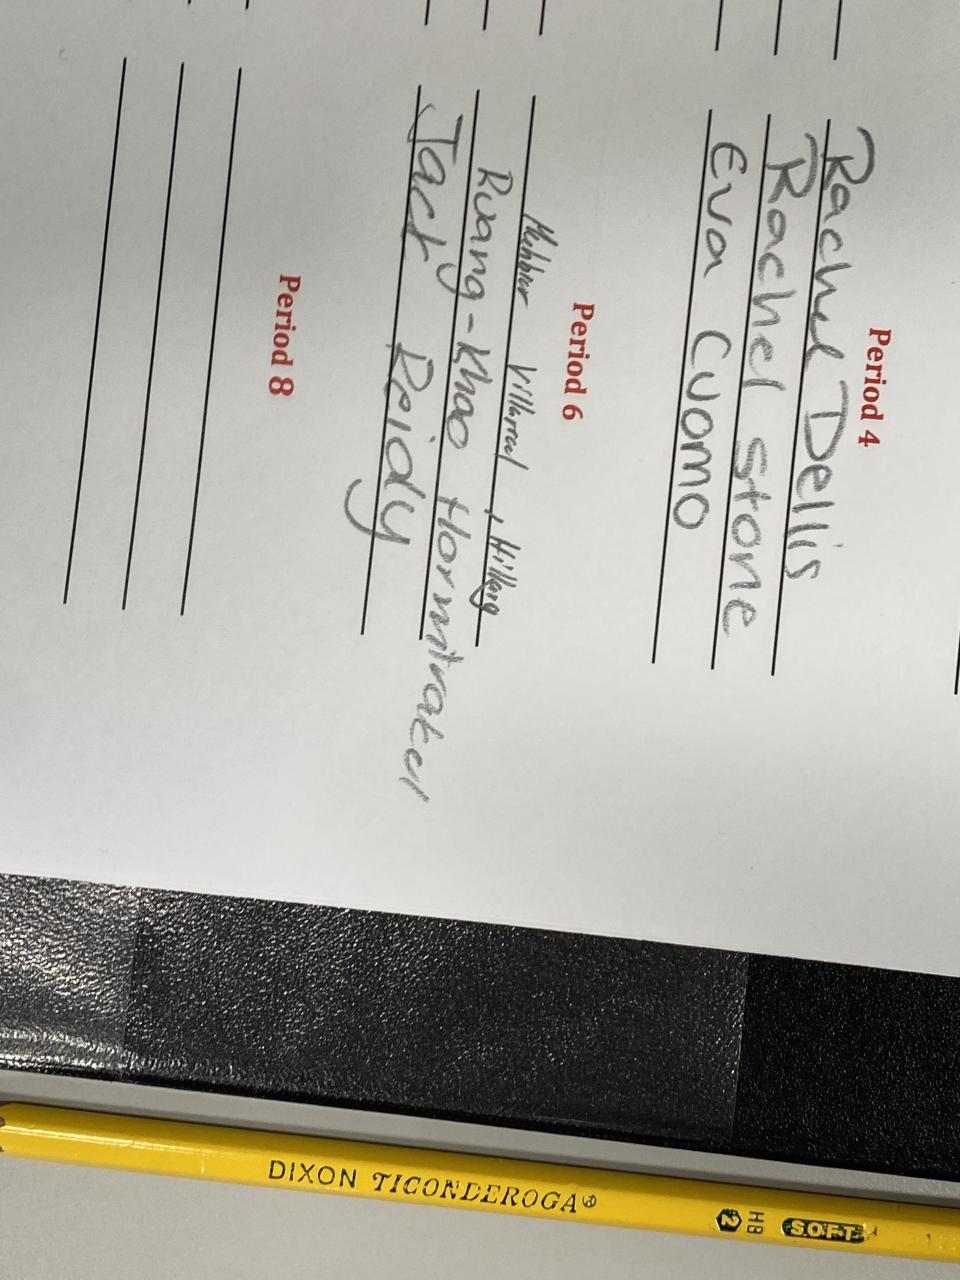 Period 4
Rachel Dellis
Rachel Stone
Eva Cuomo
Period 6
Villarreal, Hillary
Jack Reidy
Period 8
DIXON TICONDEROGA®
2 HB SOFT